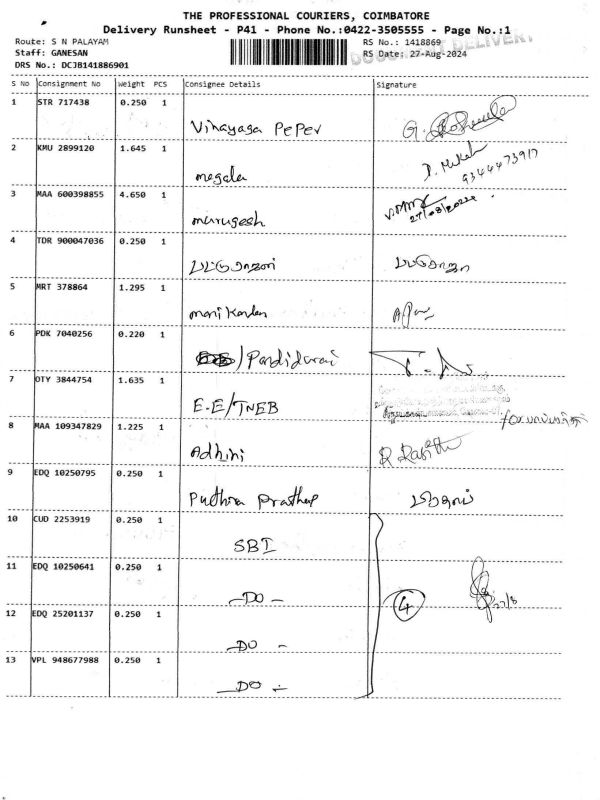 THE PROFESSIONAL COURIERS, COIMBATORE
Delivery Runsheet - P41 - Phone No.:0422-3505555 - Page No.:1
Route: S N PALAYAM
RS No.: 1418869
Staff: GANESAN
RS Date: 27-Aug-2024
DRS No.: DCJB141886901
S No Consignment No Weight PCS Consignee Details Signature
1 STR 717438 0.250 1
Vinayaga PePer
2 KMU 2899120 1.645 1
megala
9344473917
3 MAA 600398855 4.650 1
murugesh
27/08/2024
4 TDR 900047036 0.250 1
5 MRT 378864 1.295 1
manikandan
6 PDK 7040256 0.220 1
Pandidurai
7 OTY 3844754 1.635 1
E.E/TNEB
for
8 MAA 109347829 1.225 1
Adhini
9 EDQ 10250795 0.250 1
Puthira Prathap
10 CUD 2253919 0.250 1
SBI
11 EDQ 10250641 0.250 1
-DO-
4
27/8
12 EDQ 25201137 0.250 1
-DO-
13 VPL 948677988 0.250 1
-DO-